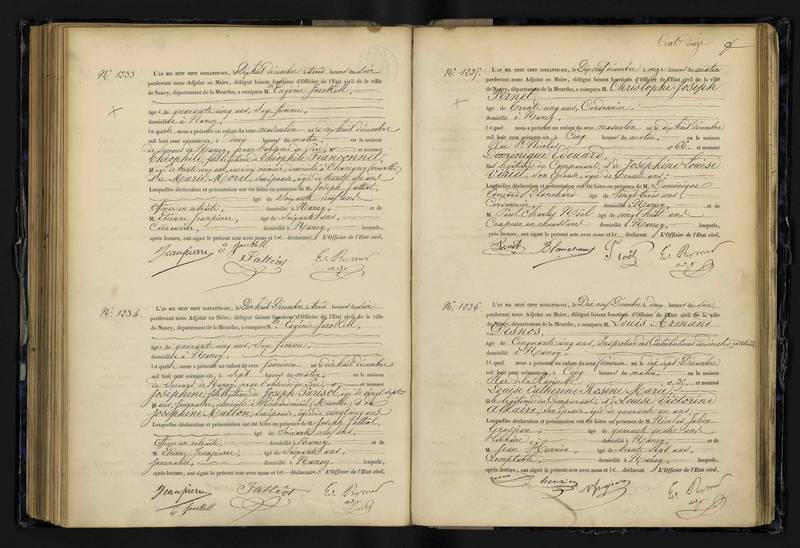 Cent douze
N° 1233
L'AN MIL HUIT CENT SOIXANTE-SIX, le Dix huit décembre à trois heures du soir
pardevant nous Adjoint au Maire, délégué faisant fonctions d'Officier de l'Etat civil de la ville
de Nancy, département de la Meurthe, a comparu M. Eugénie Jaeckell,
âgé e de quarante cinq ans, Sage femme,
domicilié e à Nancy,
laquelle, nous a présenté un enfant du sexe masculin né le dix huit décembre
mil huit cent soixante-six, à deux heures du matin en la maison
de secours de Nancy, et nommé
Théophile, fils
âgé de trente
de Marie Morel
Lesquelles déclaration et présentation ont été faites en présence de M. Joseph
âgé de Soixante neuf ans
Officier en retraite domicilié à Nancy et de
M. Etienne Jeanpierre, âgé de Soixante ans,
Cordonnier, domicilié à Nancy, lesquels,
après lecture, ont signé le présent acte avec nous et l e déclarant. L'Officier de l'Etat civil,
Jeanpierre E Jaeckell
N° 1234
L'AN MIL HUIT CENT SOIXANTE-SIX, le Dix huit Décembre à trois heures du soir
pardevant nous Adjoint au Maire, délégué faisant fonctions d'Officier de l'Etat civil de la ville
de Nancy, département de la Meurthe, a comparu M. Eugénie Jaeckell,
âgé e de quarante cinq ans, Sage femme,
domicilié e à Nancy,
laquelle, nous a présenté un enfant du sexe féminin né le dix huit décembre
mil huit cent soixante-six, à sept heures du matin, en la maison
de Secours de Nancy, pour l'absence du père, et nommé
Joséphine, fille de Joseph Parisot, âgé de vingt sept
ans, Journalier, domicilié à (Meurthe) et de
Joséphine Mutton, âgée de vingt cinq ans
Lesquelles déclaration et présentation ont été faites en présence de M. Joseph
âgé de Soixante neuf ans,
Officier en retraite domicilié à Nancy et de
M. Etienne Jeanpierre âgé de Soixante ans,
Journalier, domicilié à Nancy, lesquels,
après lecture, ont signé le présent acte avec nous et l e déclarant. L'Officier de l'Etat civil,
Jeanpierre
E Jaeckell
N° 1235
L'AN MIL HUIT CENT SOIXANTE-SIX, le Dix neuf Décembre à onze heures du matin
pardevant nous Adjoint au Maire, délégué faisant fonctions d'Officier de l'Etat civil de la ville
de Nancy, département de la Meurthe, a comparu M. Christophe Joseph
Pernet,
âgé de Trente cinq ans, Cordonnier,
domicilié à Nancy,
lequel, nous a présenté un enfant du sexe masculin né le dix huit décembre
mil huit cent soixante-six, à Cinq heures du matin, en la maison
Rue St Nicolas, n° 66 et nommé
Dominique Edouard,
fils légitime du Comparant, et de Joséphine Louise
son Epouse, âgée de Trente ans,
Lesquelles déclaration et présentation ont été faites en présence de M. Dominique
Edouard Blanchard âgé de vingt trois ans,
Cordonnier, domicilié à Nancy, et de
M. Paul Charles Noël âgé de vingt huit ans
Coupeur en chaussures domicilié à Nancy, lesquels,
après lecture, ont signé le présent acte avec nous et le déclarant. L'Officier de l'Etat civil,
Pernet Blanchard P Noël
N° 1236
L'AN MIL HUIT CENT SOIXANTE-SIX, le Dix neuf Décembre à deux heures du soir,
pardevant nous Adjoint au Maire, délégué faisant fonctions d'Officier de l'Etat civil de la ville
de Nancy, département de la Meurthe, a comparu M. Louis Armand
Desnos,
âgé de Cinquante cinq ans, Inspecteur des Contributions
domicilié à Nancy,
lequel, nous a présenté un enfant du sexe féminin né le dix sept Décembre
mil huit cent soixante-six, à Cinq heures du matin, en la maison
Rue de la n° 35, et nommé
Louise Catherine Rosine Marie,
fille légitime du Comparant, et de Louise Victorine
son épouse âgée de quarante un ans,
Lesquelles déclaration et présentation ont été faites en présence de M. Nicolas Julien
Grosjean âgé de quarante quatre ans,
Libraire, domicilié à Nancy, et de
M. Jean Henrion âgé de trente sept ans,
Comptable, domicilié à Nancy, lesquels,
après lecture, ont signé le présent acte avec nous et le déclarant. L'Officier de l'Etat civil,
henrion N Grosjean